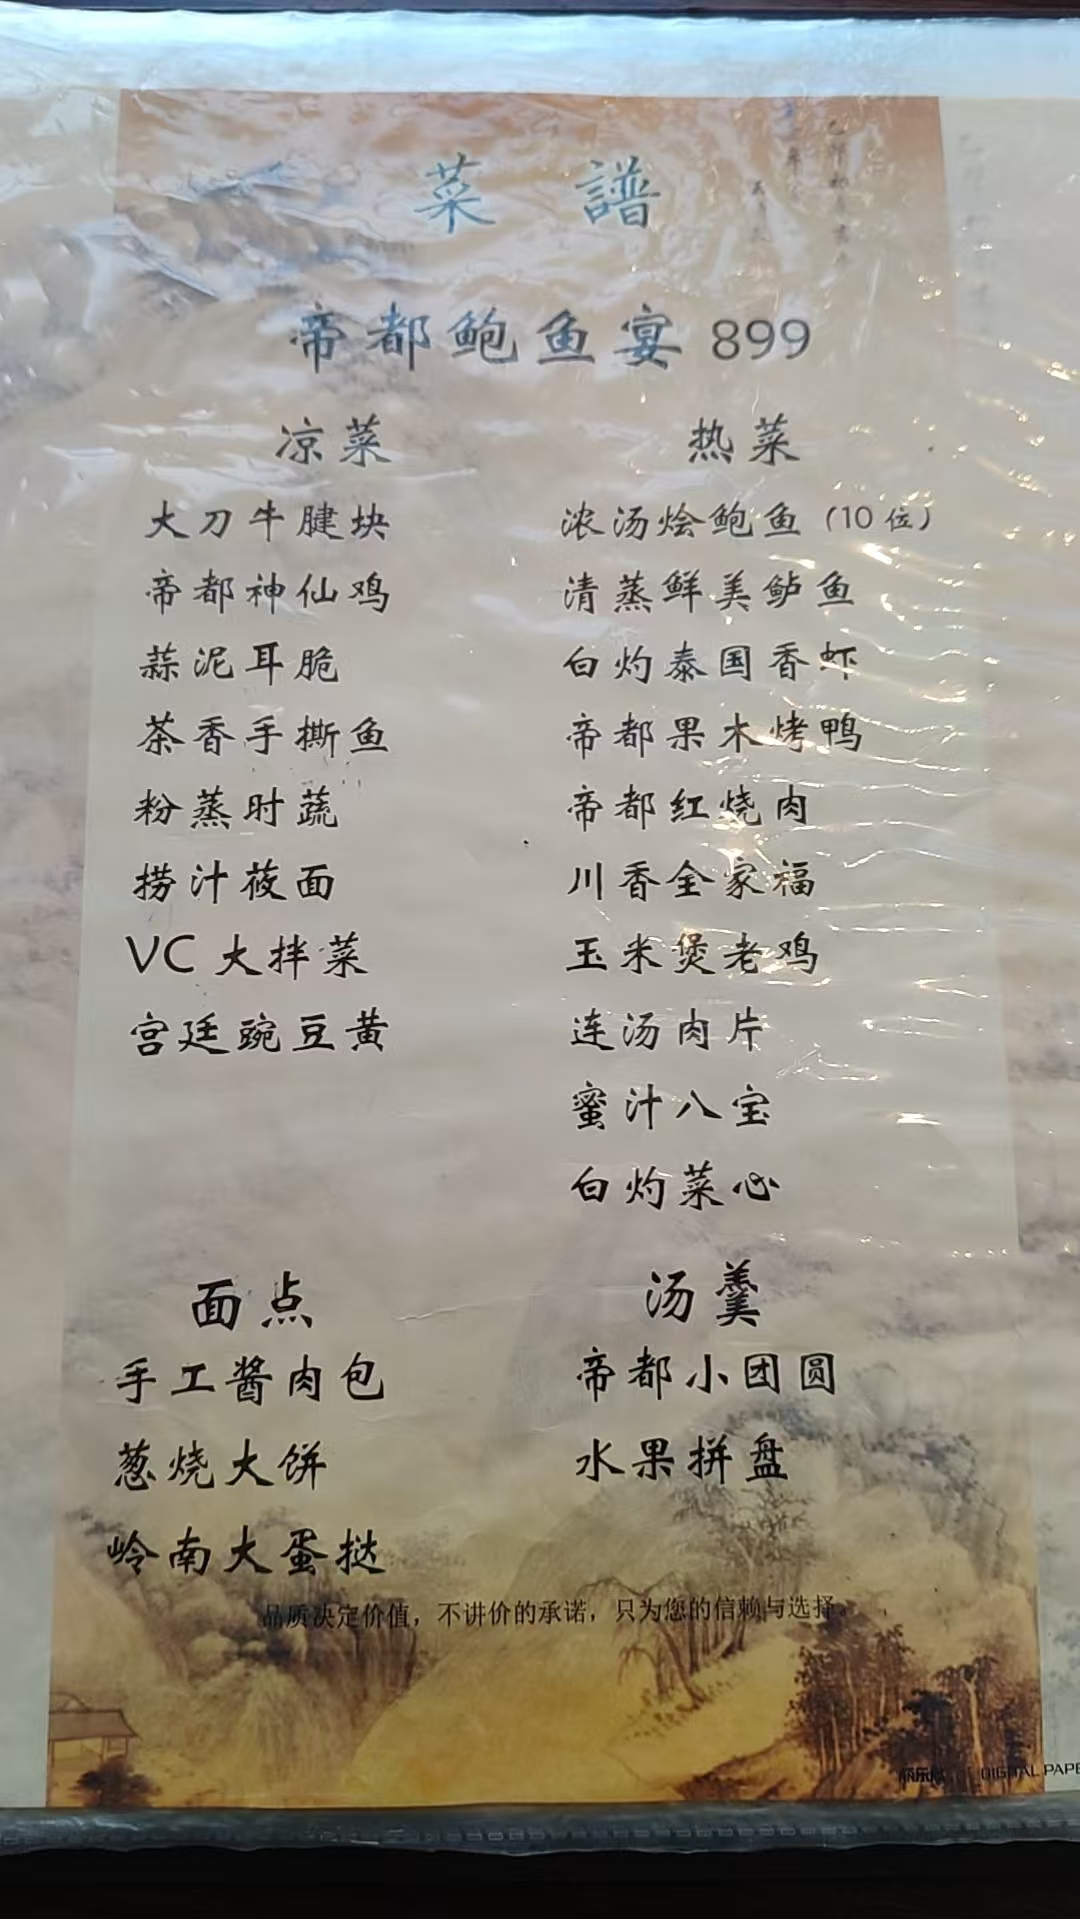 菜譜
帝都鲍鱼宴 899
凉菜
大刀牛腱块
帝都神仙鸡
蒜泥耳脆
茶香手撕鱼
粉蒸时蔬
捞汁莜面
VC 大拌菜
宫廷豌豆黄
热菜
浓汤烩鲍鱼（10 位）
清蒸鲜美鲈鱼
白灼泰国香虾
帝都果木烤鸭
帝都红烧肉
川香全家福
玉米煲老鸡
连汤肉片
蜜汁八宝
白灼菜心
面点
手工酱肉包
葱烧大饼
岭南大蛋挞
汤羹
帝都小团圆
水果拼盘
品质决定价值，不讲价的承诺，只为您的信赖与选择。
DIGITAL PAPE